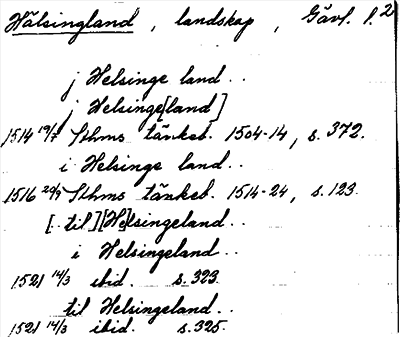 Hälsingland, landskap, Gävl. l. 2
j Helsinge land..
j Helsinge[land]
1514 19/7 Sthms tänkeb. 1504-14, s. 372.
i Helsinge land..
1516 20/9 Sthms tänkeb. 1514-24, s. 123.
[.. til] [He]lsingeland..
i Helsingeland..
1521 14/3 ibid. s. 323.
til Helsingeland..
1521 14/3 ibid. s. 325.